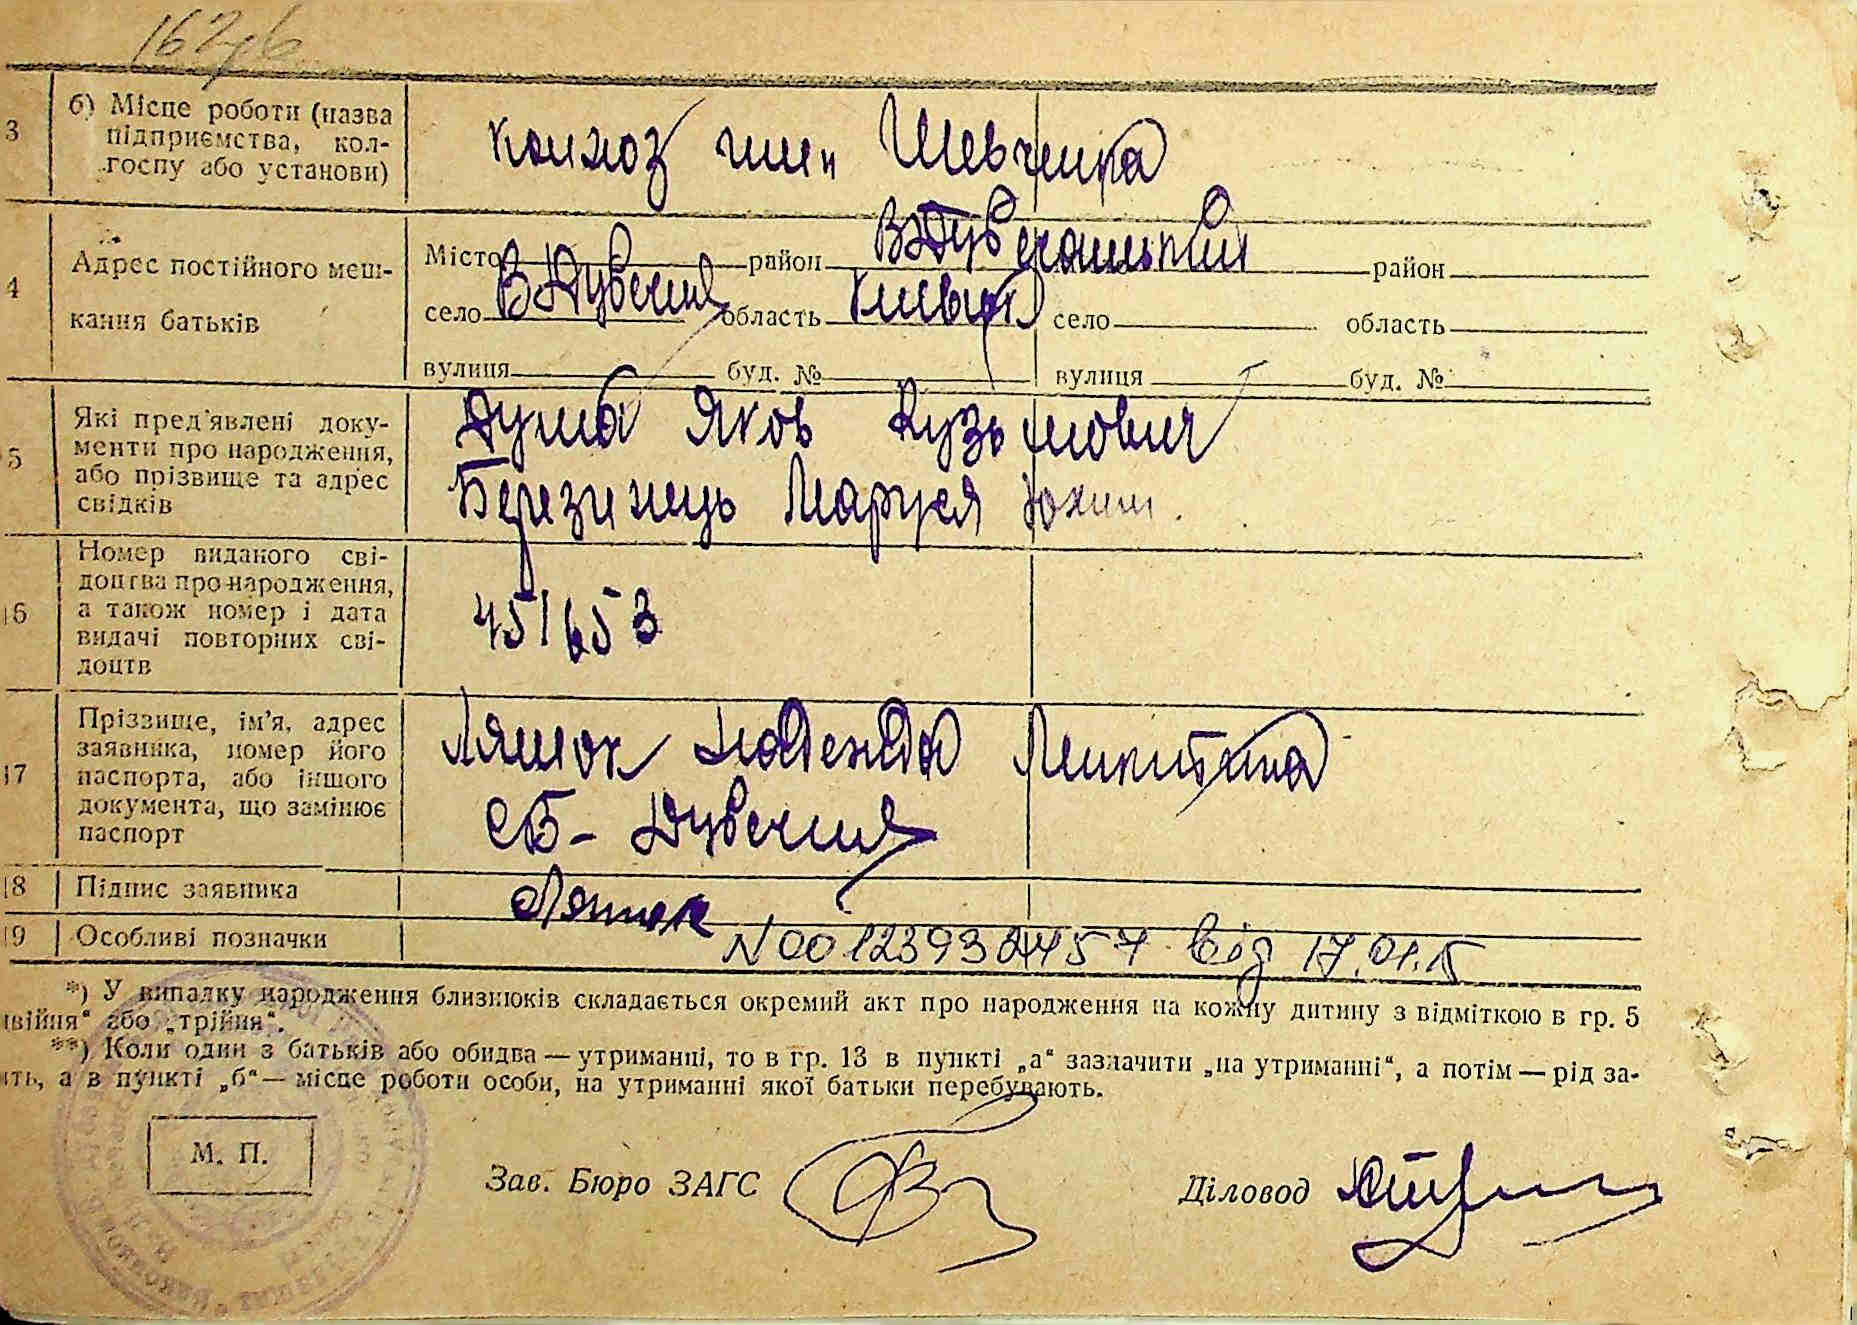 162/6
3 б) Місце роботи (назва
підприємства, кол-
госпу або установи)
колхоз имен Шевченка
4 Адрес постійного меш-
кання батьків
Місто район В Дубечанський район
село В Дубечня область Київськ село область
вулиця буд. № вулиця буд. №
5 Які пред'явлені доку-
менти про народження,
або прізвище та адрес
свідків
Дума Яков Кузьмович
Березинець Маруся Юхим.
16 Номер виданого сві-
доцтва про народження,
а також номер і дата
видачі повторних сві-
доцтв
451653
17 Прізвище, ім'я, адрес
заявника, номер його
паспорта, або іншого
документа, що замінює
паспорт
Ляшок Надежда Микитина
с В- Дубечня
18 Підпис заявника Ляшок
19 Особливі позначки N 00123932457 від 17.01.15
*) У випадку народження близнюків складається окремий акт про народження на кожну дитину з відміткою в гр. 5
двійня" або „трійня".
**) Коли один з батьків або обидва — утриманці, то в гр. 13 в пункті „а" зазначити „на утриманні", а потім — рід за-
ять, а в пункті „б" — місце роботи особи, на утриманні якої батьки перебувають.
М. П.
Зав. Бюро ЗАГС Діловод